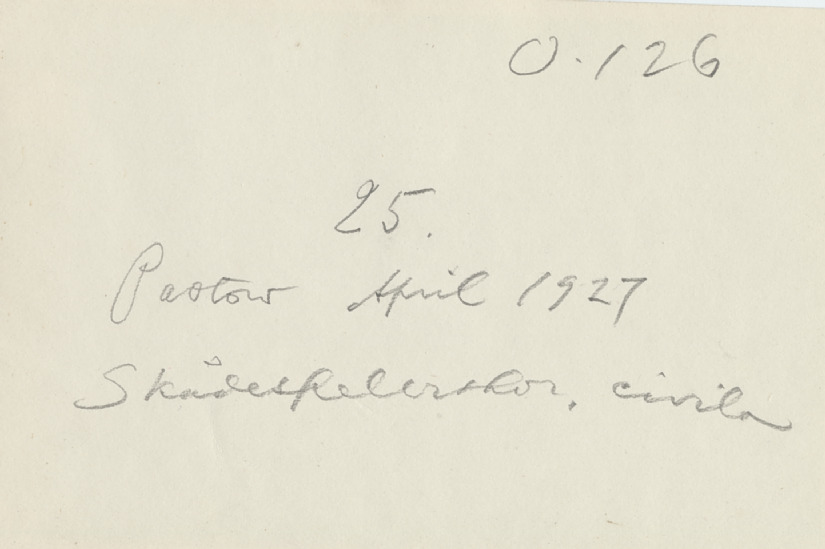 O.126
25.
Pastow April 1927
Skådespelerskor, civila